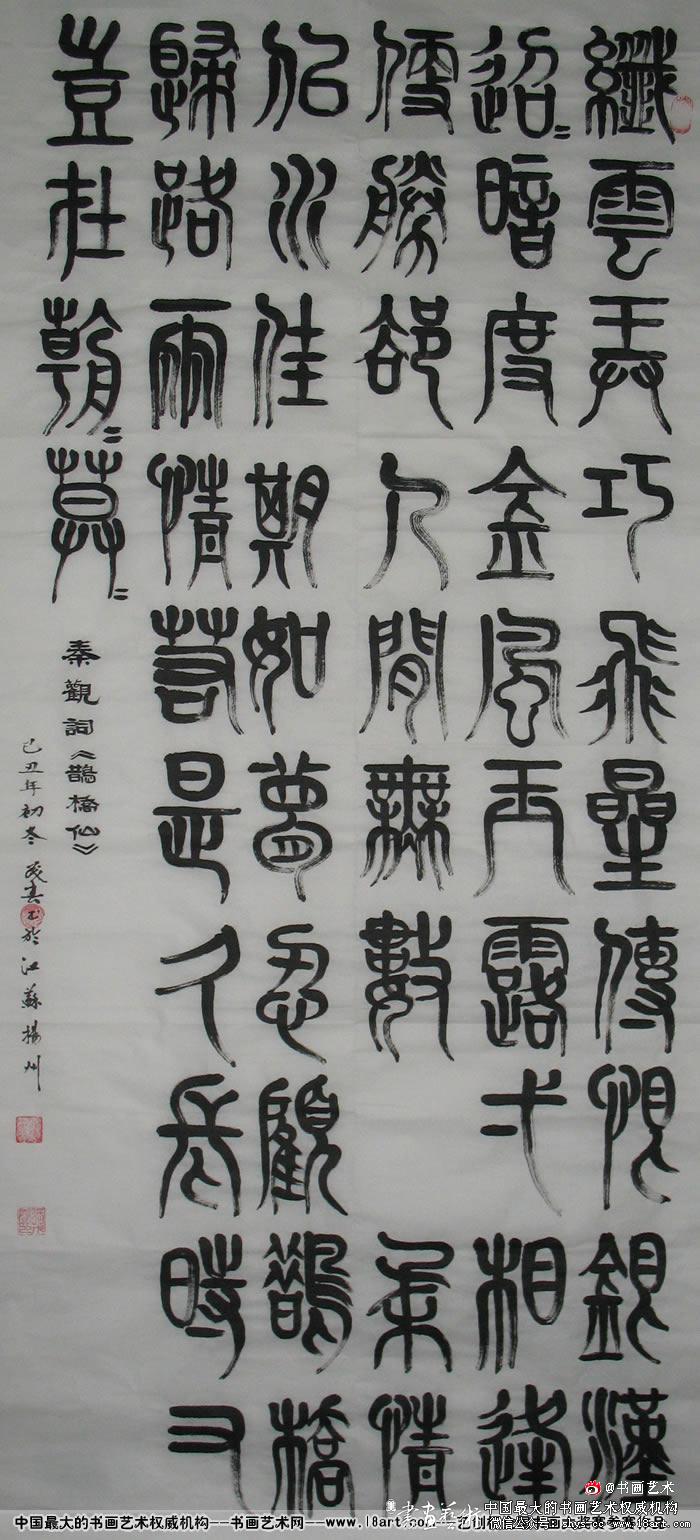 纖雲弄巧飛星傳恨銀漢
迢〻暗度金風玉露弌相逢
便勝卻人間無數 柔情
似水佳期如夢忍顧鵲橋
歸路兩情若是久長時又
豈在朝〻暮〻
秦觀詞《鵲橋仙》
己丑年初冬 於江蘇揚州
@书画艺术
中国最大的书画艺术权威机构
中国最大的书画艺术权威机构---书画艺术网---www.18art.com